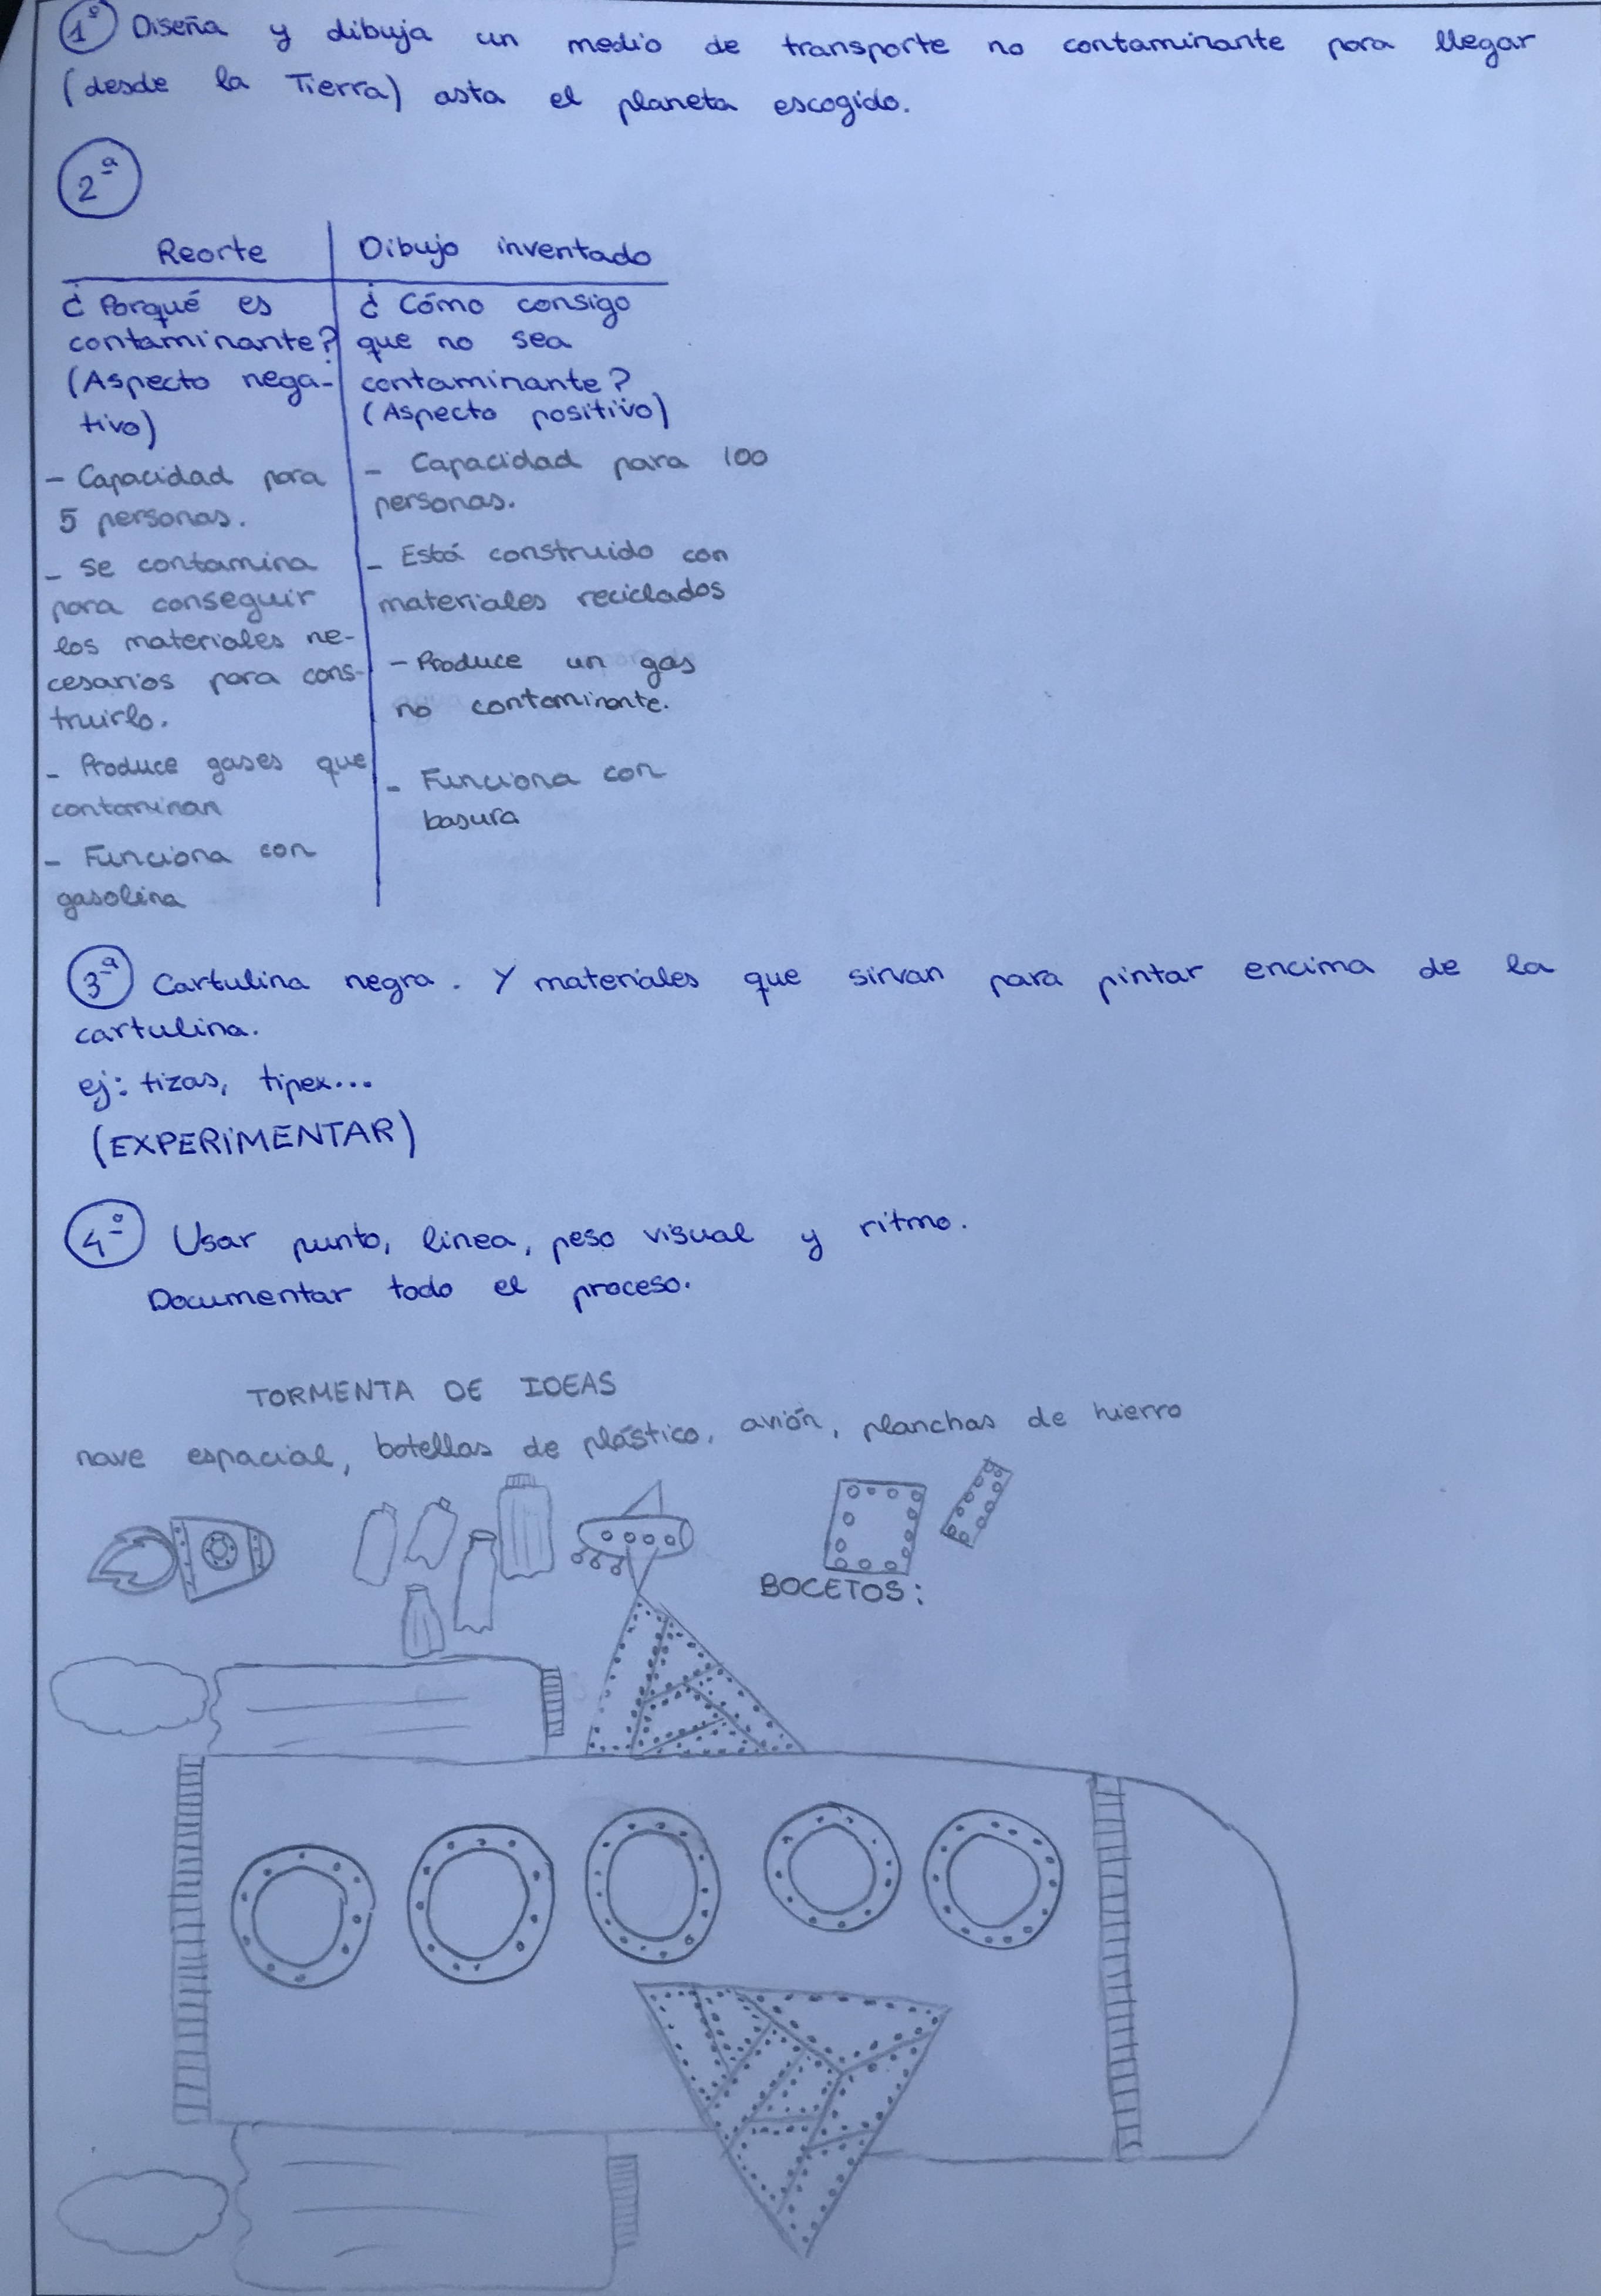 1º Diseña y dibuja un medio de transporte no contaminante para llegar
(desde la Tierra) asta el planeta escogido.
2ª
Reorte
¿Porqué es
contaminante?
(Aspecto nega-
tivo)
- Capacidad para
5 personas.
- Se contamina
para conseguir
los materiales ne-
cesarios para cons-
truirlo.
- Produce gases que
contaminan
- Funciona con
gasolina
Dibujo inventado
¿Cómo consigo
que no sea
contaminante?
(Aspecto positivo)
- Capacidad para 100
personas.
- Está construido con
materiales reciclados
- Produce un gas
no contaminante.
- Funciona con
basura
3ª Cartulina negra. Y materiales que sirvan para pintar encima de la
cartulina.
ej: tizas, tipex...
(EXPERIMENTAR)
4º Usar punto, linea, peso visual y ritmo.
Documentar todo el proceso.
TORMENTA DE IDEAS
nave espacial, botellas de plástico, avión, planchas de hierro
BOCETOS: